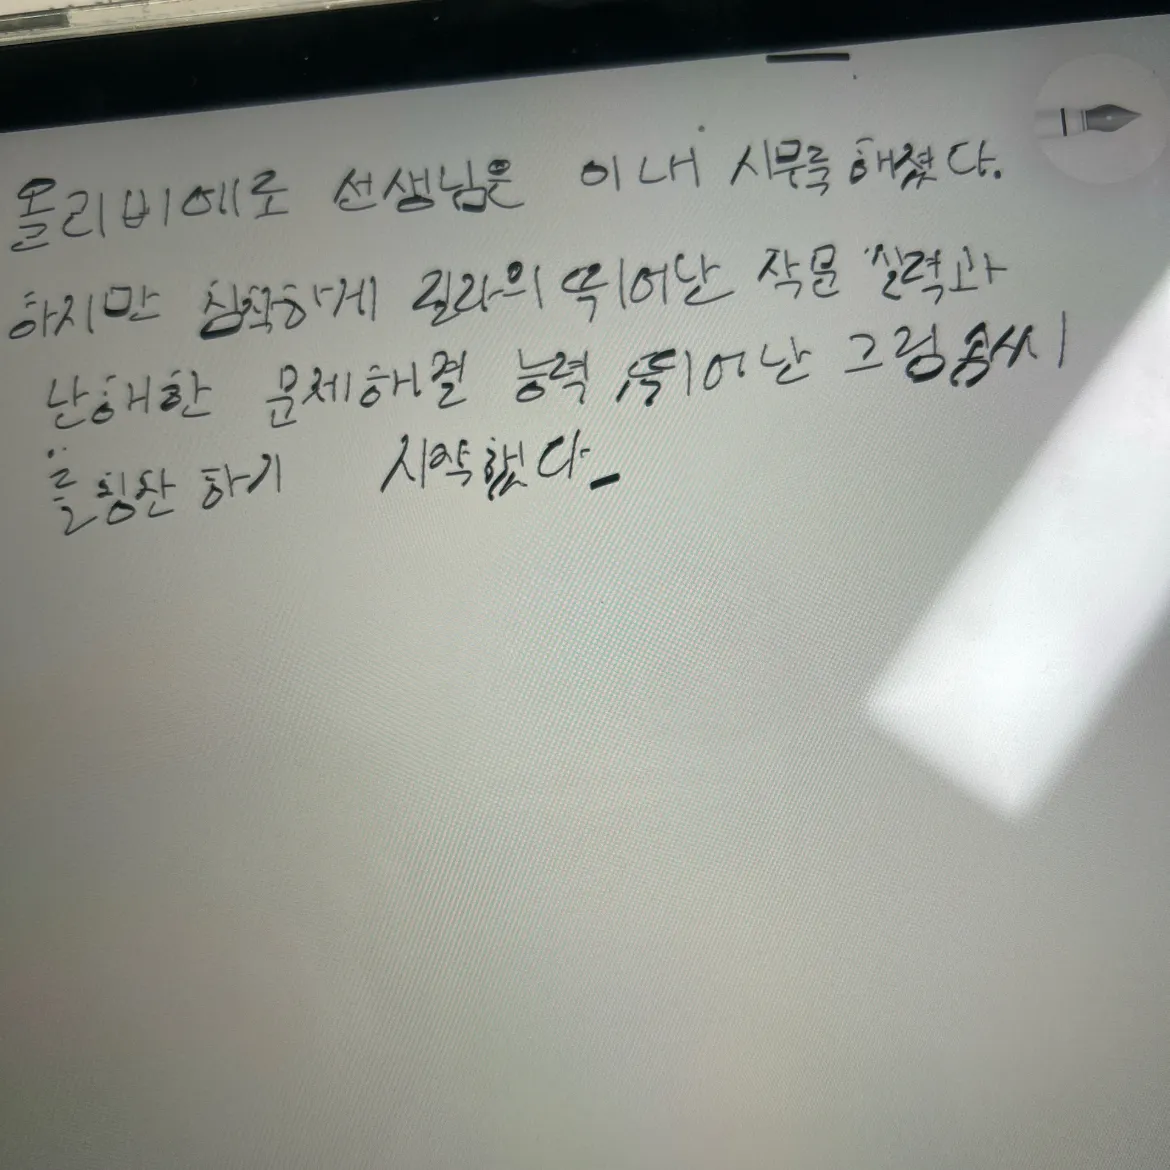 올리비에로 선생님은 이내 시무룩해졌다.
하지만 침착하게 릴라의 뛰어난 작문 실력과
난해한 문제해결 능력 뛰어난 그림솜씨
를 칭찬 하기 시작했다